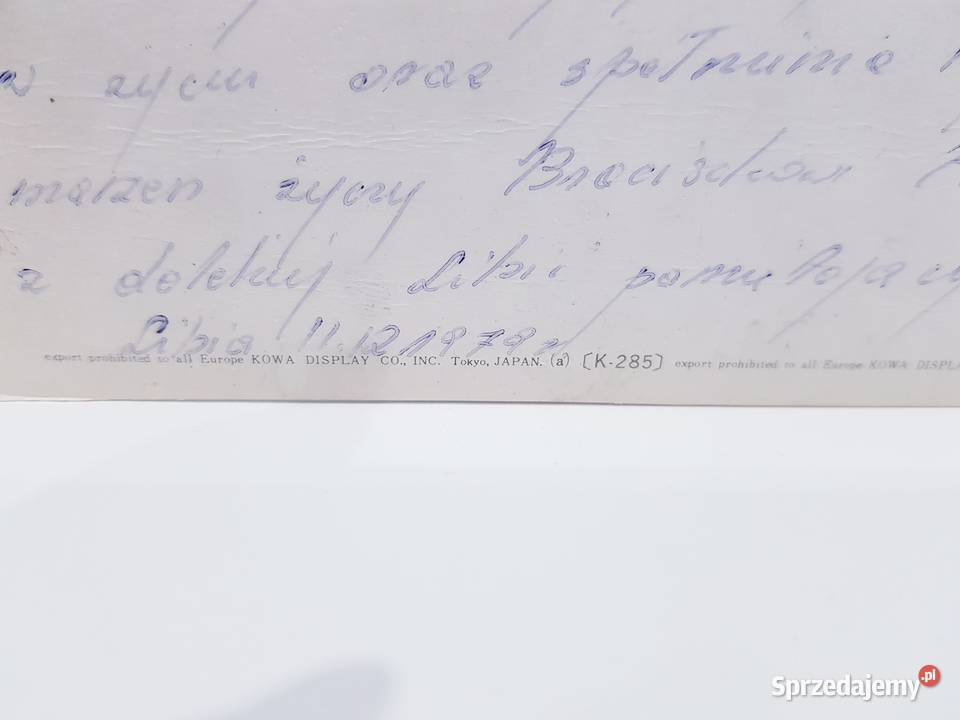 w życiu oraz spełnienia
marzeń życzy Braciszkowi
z dalekiej Libii pamiętający
Libia 11.12.1979r
export prohibited to all Europe KOWA DISPLAY CO., INC. Tokyo, JAPAN. (a) [K-285] export prohibited to all Europe KOWA DISPLA
Sprzedajemy.pl